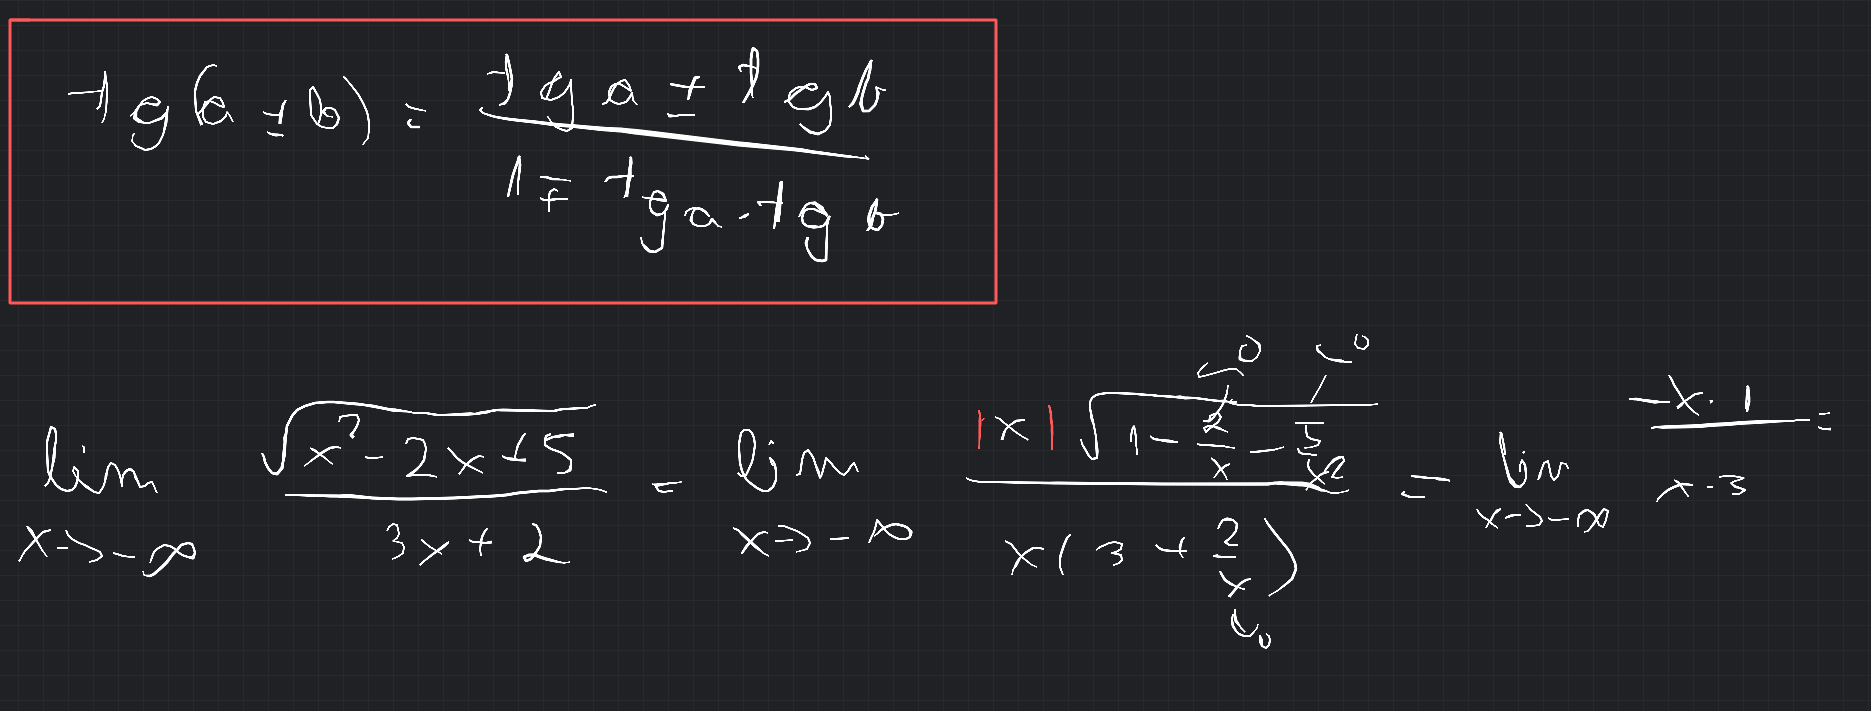 tg(a ± b) = (tg a ± tg b) / (1 ∓ tg a · tg b)
lim x->-∞ √(x² - 2x + 5) / (3x + 2) = lim x->-∞ |x| √(1 - 2/x - 5/x²) / x(3 + 2/x) = lim x->-∞ -x · 1 / x · 3 =
0 0
0